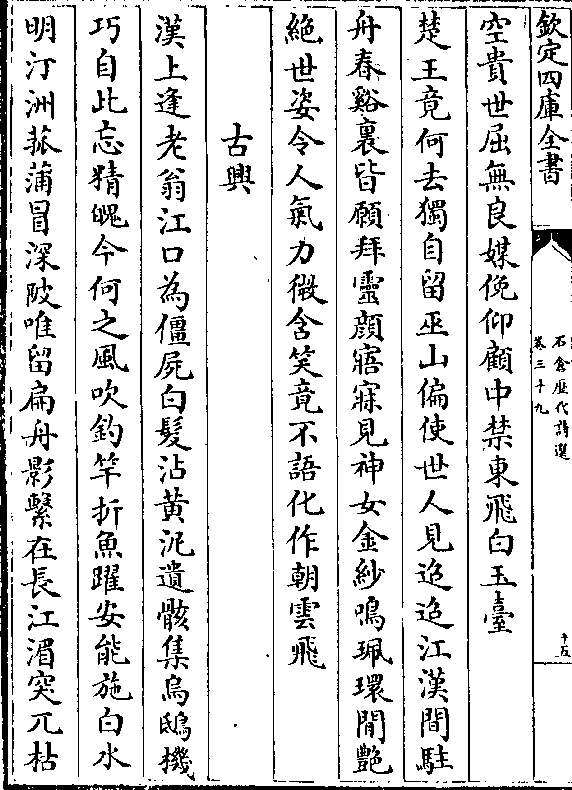 欽定四庫全書
石倉歷代詩選
卷三十九
十五
空貴世屈無良媒俛仰顧中禁東飛白玉臺
楚王竟何去獨自留巫山偏使世人見迢迢江漢間駐
舟春谿裏皆願拜靈顔寤寐見神女金紗鳴珮環閒艶
絶世姿令人氣力微含笑竟不語化作朝雲飛
古興
漢上逢老翁江口為僵屍白髮沾黄泥遺骸集烏鴟機
巧自此忘精魄今何之風吹釣竿折魚躍安能施白水
明汀洲菰蒲冒深陂唯留扁舟影繫在長江湄突兀枯